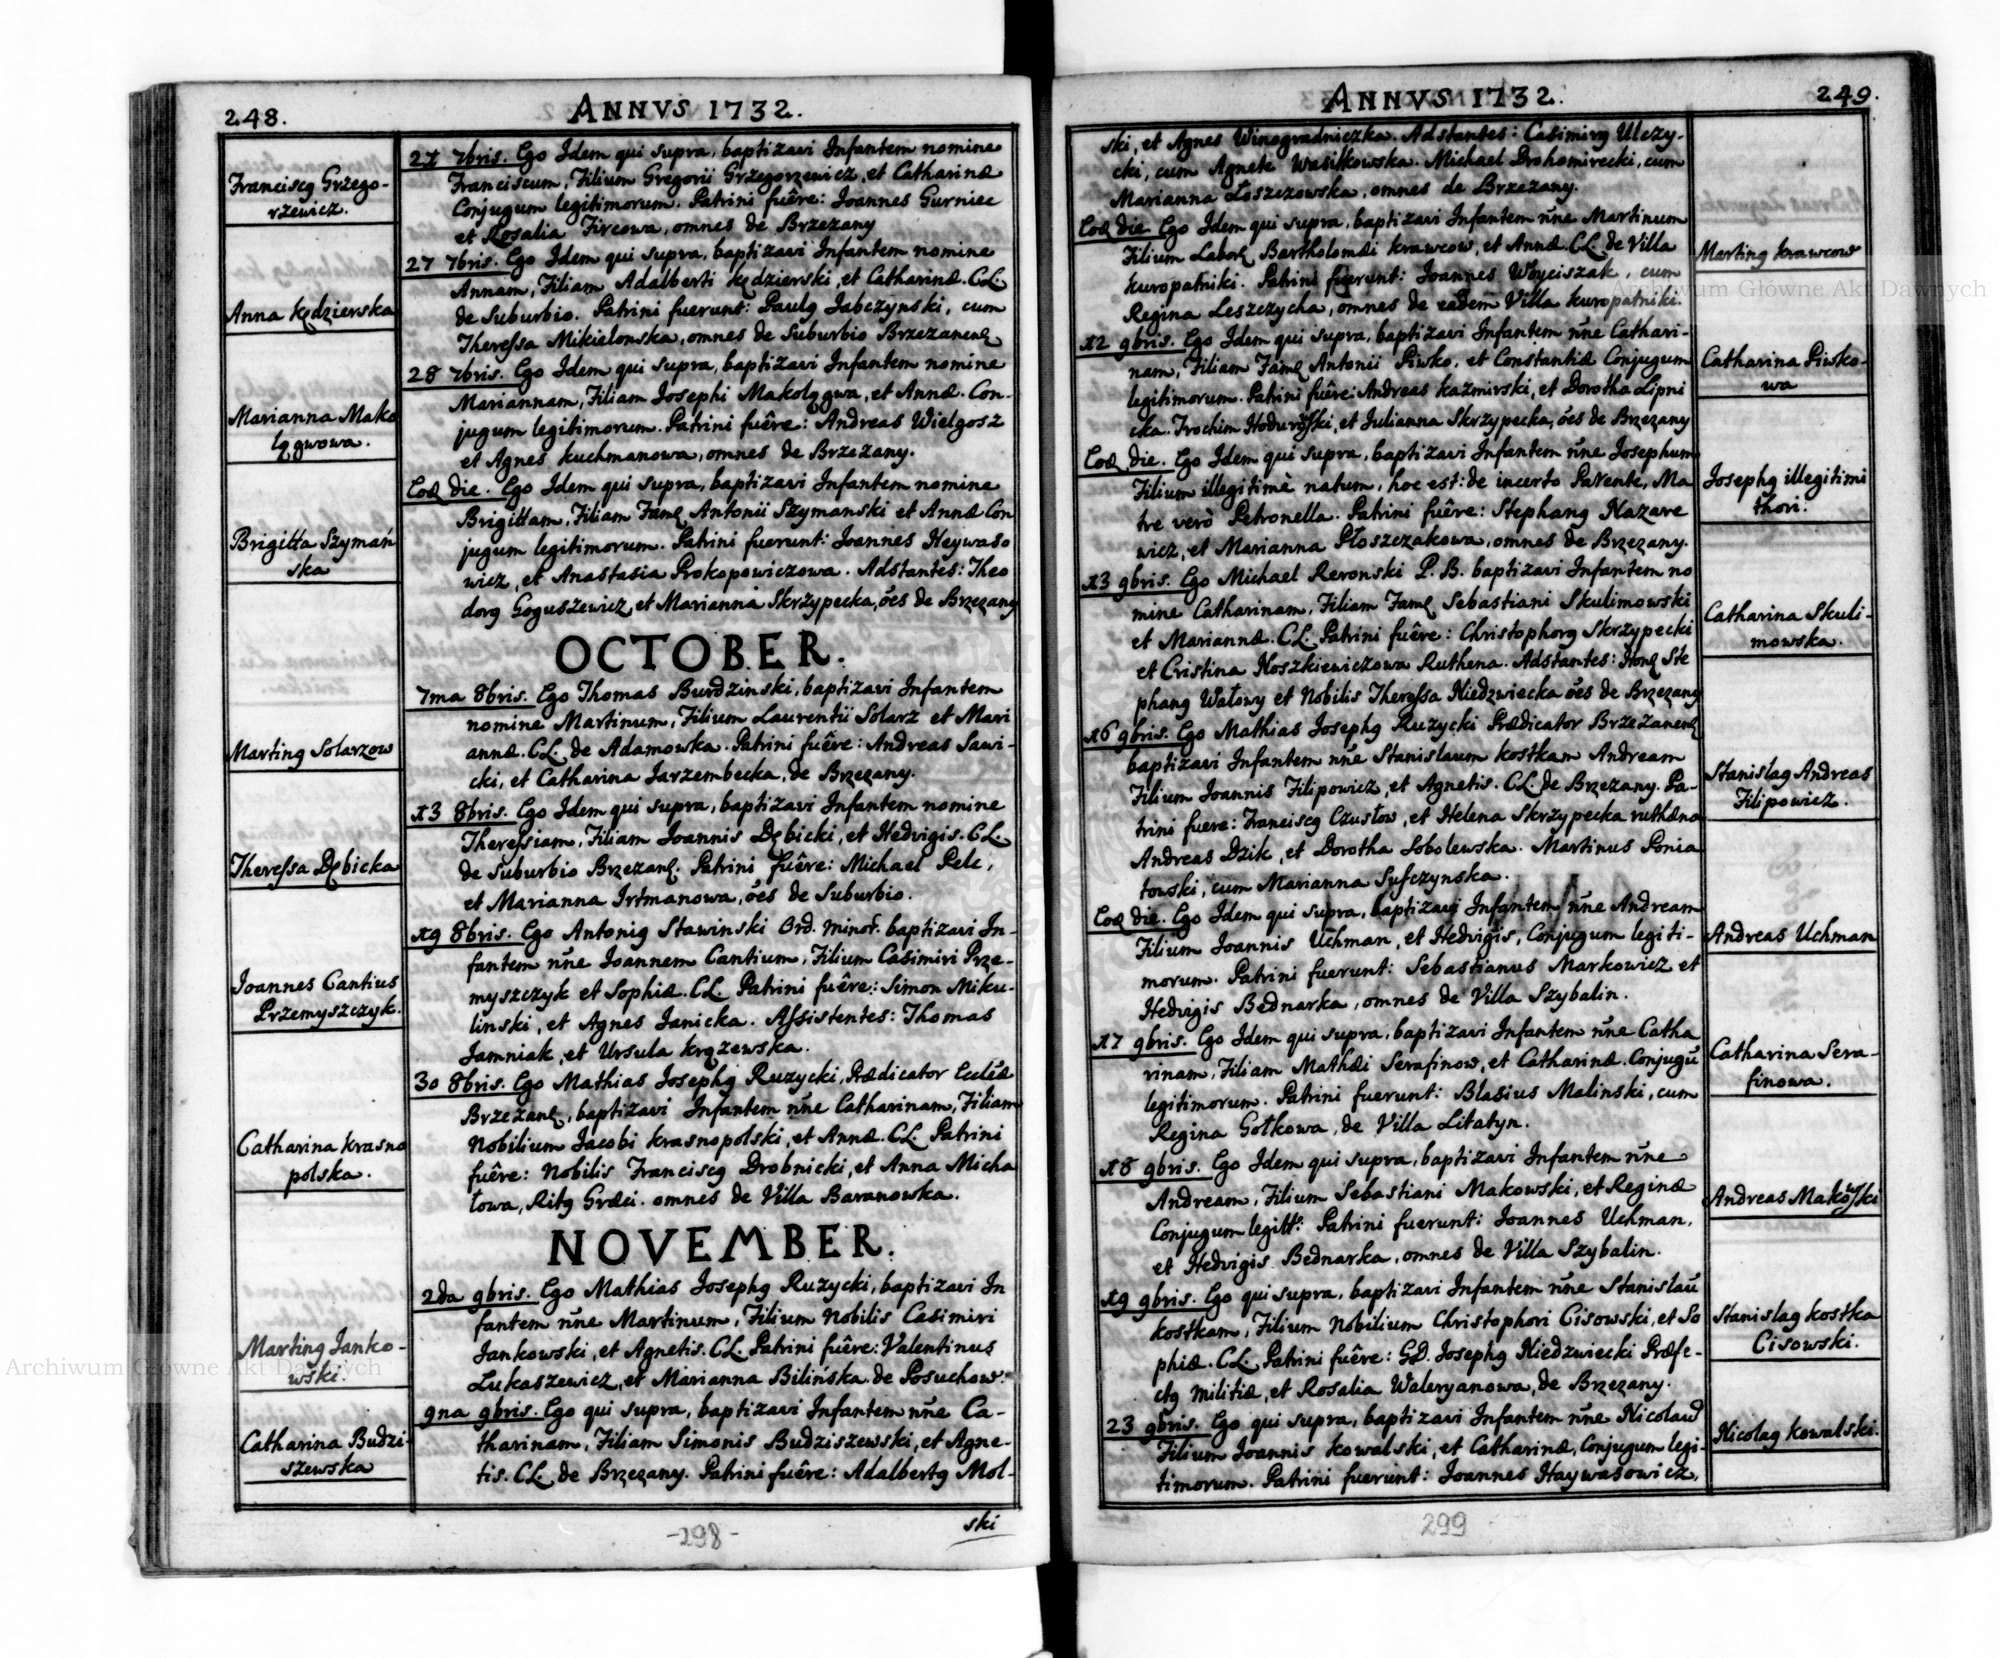 248.
ANNVS 1732.
Franciscꝯ Grzego-
rzewicz.
27 7bris. Ego Idem qui supra, baptizavi Infantem nomine
Franciscum, Filium Gregorii Grzegorzewicz, et Catharinæ
Conjugum legitimorum. Patrini fuêre: Joannes Gurniec
et Rosalia Fircowa, omnes de Brzezany
Anna Kędzierska
27 7bris. Ego Idem qui supra, baptizavi Infantem nomine
Annam, Filiam Adalberti Kędzierski, et Catharinæ. CL.
de Suburbio. Patrini fuerunt: Paulꝯ Jabczynski, cum
Theressa Mikielonska, omnes de Suburbio Brzezanenꝭ
Marianna Mako
lągwowa.
28 7bris. Ego Idem qui supra, baptizavi Infantem nomine
Mariannam, Filiam Josephi Makolągwa, et Annæ. Con-
jugum legitimorum. Patrini fuêre: Andreas Wielgosz
et Agnes Kuchmanowa, omnes de Brzezany.
Brigitta Szymań
ska
Eoꝭ die. Ego Idem qui supra, baptizavi Infantem nomine
Brigittam, Filiam Famꝭ Antonii Szymanski et Annæ Con
jugum legitimorum. Patrini fuerunt: Joannes Heywaso
wicz, et Anastasia Prokopowiczowa. Adstantes: Theo
dorꝯ Goguszewicz, et Marianna Skrzypecka, ões de Brzezany
OCTOBER.
Martinꝯ Solarzow
7ma 8bris. Ego Thomas Burdzinski, baptizavi Infantem
nomine Martinum, Filium Laurentii Solarz et Mari
annæ. CL. de Adamowka. Patrini fuêre: Andreas Sawi-
cki, et Catharina Jarzembecka, de Brzezany.
Theressa Dębicka
13 8bris. Ego Idem qui supra, baptizavi Infantem nomine
Theressiam, Filiam Joannis Dębicki, et Hedvigis. CL.
de Suburbio Brzezanꝭ. Patrini fuêre: Michael Pelc,
et Marianna Irtmanowa, ões de Suburbio.
Joannes Cantius
Przemyszczyk.
19 8bris. Ego Antoniꝯ Stawinski Ord. Minor̃. baptizavi In-
fantem ñne Joannem Cantium, Filium Casimiri Prze-
myszczyk et Sophiæ. CL. Patrini fuêre: Simon Miku-
linski, et Agnes Janicka. Assistentes: Thomas
Jamniak, et Ursula Krązewska.
Catharina Krasno
polska.
30 8bris. Ego Mathias Josephꝯ Ruzycki, Prædicator Eccl̃æ
Brzezanꝭ, baptizavi Infantem ñne Catharinam, Filiam
Nobilium Jacobi Krasnopolski, et Annæ. CL. Patrini
fuêre: Nobilis Franciscꝯ Drobnicki, et Anna Micha
łowa, Ritꝯ Græci. omnes de Villa Baranowka.
NOVEMBER.
Martinꝯ Janko-
wski.
2da 9bris. Ego Mathias Josephꝯ Ruzycki, baptizavi In
fantem ñne Martinum, Filium Nobilis Casimiri
Jankowski, et Agnetis. CL. Patrini fuêre: Valentinus
Łukaszewicz, et Marianna Bilińska de Posuchow.
Catharina Budzi-
szewska
9na 9bris. Ego qui supra, baptizavi Infantem ñne Ca-
tharinam, Filiam Simonis Budziszewski, et Agne-
tis. CL. de Brzezany. Patrini fuêre: Adalbertꝯ Mol-
ski
-298-
ANNVS 1732.
249.
ski, et Agnes Winogradniczka. Adstantes: Casimirꝯ Ulczy-
cki, cum Agnete Wasilkowska. Michael Drohomirecki, cum
Marianna Łoszczowska, omnes de Brzezany.
Eoꝭ die. Ego Idem qui supra, baptizavi Infantem ñne Martinum
Filium Laborꝭ Bartholomæi Krawcow, et Annæ. CL. de Villa
Kuropatniki. Patrini fuerunt: Joannes Woyciszak, cum
Regina Leszczycha, omnes de eadem Villa Kuropatniki.
Martinꝯ Krawcow
12 9bris. Ego Idem qui supra, baptizavi Infantem ñne Cathari-
nam, Filiam Famꝭ Antonii Piwko, et Constantiæ Conjugum
legitimorum. Patrini fuêre: Andreas Kazmirski, et Dorotha Lipni
cka. Trochim Hodurowski, et Julianna Skrzypecka, ões de Brzezany
Catharina Piwko-
wa
Eoꝭ die. Ego Idem qui supra, baptizavi Infantem ñne Josephum
Filium illegitimè natum, hoc est: de incerto Parente, Ma
tre verò Petronella. Patrini fuêre: Stephanꝯ Nazare
wicz, et Marianna Płoszczakowa, omnes de Brzezany.
Josephꝯ illegitimi
thori.
13 9bris. Ego Michael Reronski P. B. baptizavi Infantem no
mine Catharinam, Filiam Famꝭ Sebastiani Skulimowski
et Mariannæ. CL. Patrini fuêre: Christophorꝯ Skrzypecki
et Cristina Noszkiewiczowa Ruthena. Adstantes: Honꝭ Ste
phanꝯ Wałowy et Nobilis Theressa Niedzwiecka ões de Brzezany
Catharina Skuli-
mowska.
16 9bris. Ego Mathias Josephꝯ Ruzycki Prædicator Brzezanenꝭ
baptizavi Infantem ñne Stanislaum Kostkam Andream
Filium Joannis Filipowicz, et Agnetis. CL. de Brzezany. Pa-
trini fuere: Franciscꝯ Czusłow, et Helena Skrzypecka ruthæna
Andreas Dzik, et Dorotha Sobolewska. Martinus Ponia
towski, cum Marianna Sufczynska.
Stanislaꝯ Andreas
Filipowicz.
Eoꝭ die. Ego Idem qui supra, baptizavi Infantem ñne Andream
Filium Joannis Uchman, et Hedvigis, Conjugum legiti-
morum. Patrini fuerunt: Sebastianus Markowicz et
Hedvigis Bednarka, omnes de Villa Szybalin.
Andreas Uchman
17 9bris. Ego Idem qui supra, baptizavi Infantem ñne Catha
rinam, Filiam Mathæi Serafinow, et Catharinæ. Conjugũ
legitimorum. Patrini fuerunt: Blasius Malinski, cum
Regina Gołkowa, de Villa Litatyn.
Catharina Sera-
finowa.
18 9bris. Ego Idem qui supra, baptizavi Infantem ñne
Andream, Filium Sebastiani Makowski, et Reginæ
Conjugum legitt̃. Patrini fuerunt: Joannes Uchman,
et Hedvigis Bednarka, omnes de Villa Szybalin.
Andreas Makowski
19 9bris. Ego qui supra, baptizavi Infantem ñne Stanislaũ
Kostkam, Filium Nobilium Christophori Cisowski, et So
phiæ. CL. Patrini fuêre: GD. Josephꝯ Niedzwiecki Præfe-
ctꝯ militiæ, et Rosalia Waleryanowa, de Brzezany.
Stanislaꝯ Kostka
Cisowski.
23 9bris. Ego qui supra, baptizavi Infantem ñne Nicolaũ
Filium Joannis Kowalski, et Catharinæ, Conjugum legi-
timorum. Patrini fuerunt: Joannes Haywasowicz,
Nicolaꝯ Kowalski.
299
Archiwum Główne Akt Dawnych
Archiwum Główne Akt Dawnych